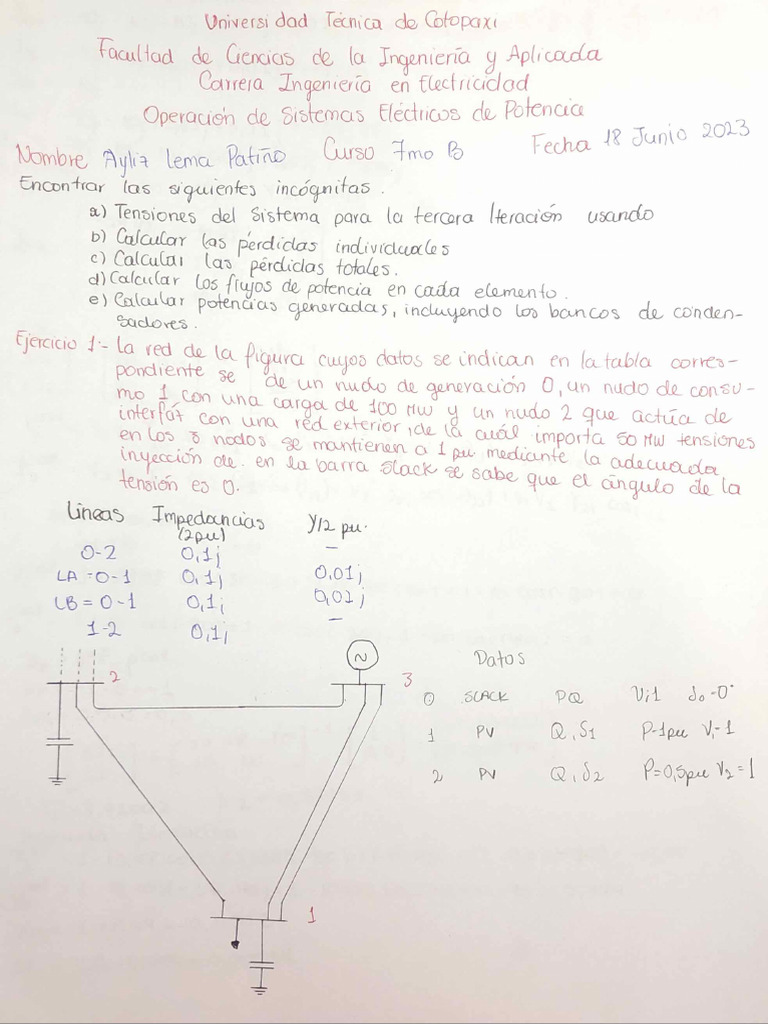 Universidad Técnica de Cotopaxi
Facultad de Ciencias de la Ingeniería y Aplicada
Carrera Ingeniería en Electricidad
Operación de Sistemas Eléctricos de Potencia
Nombre Ayliz Lema Patiño Curso 7mo B Fecha 18 Junio 2023
Encontrar las siguientes incógnitas.
a) Tensiones del Sistema para la tercera Iteración usando
b) Calcular las pérdidas individuales
c) Calcular las pérdidas totales.
d) Calcular los flujos de potencia en cada elemento.
e) Calcular potencias generadas, incluyendo los bancos de conden-
sadores.
Ejercicio 1:- La red de la figura cuyos datos se indican en la tabla corres-
pondiente se de un nudo de generación 0, un nudo de consu-
mo 1 con una carga de 100 MW y un nudo 2 que actúa de
interfáz con una red exterior, de la cuál importa 50 MW tensiones
en los 3 nodos se mantienen a 1 pu mediante la adecuada
inyección de. en la barra slack se sabe que el ángulo de la
tensión es 0.
Líneas Impedancias Y/2 pu.
(2pu)
0-2 0,1j –
LA = 0-1 0,1j 0,01j
LB = 0-1 0,1j 0,01j
1-2 0,1j –
2
3
1
Datos
0 SLACK PQ V;1 δ0-0°
1 PV Q,δ1 P-1pu V1-1
2 PV Q,δ2 P=0,5pu V2=1